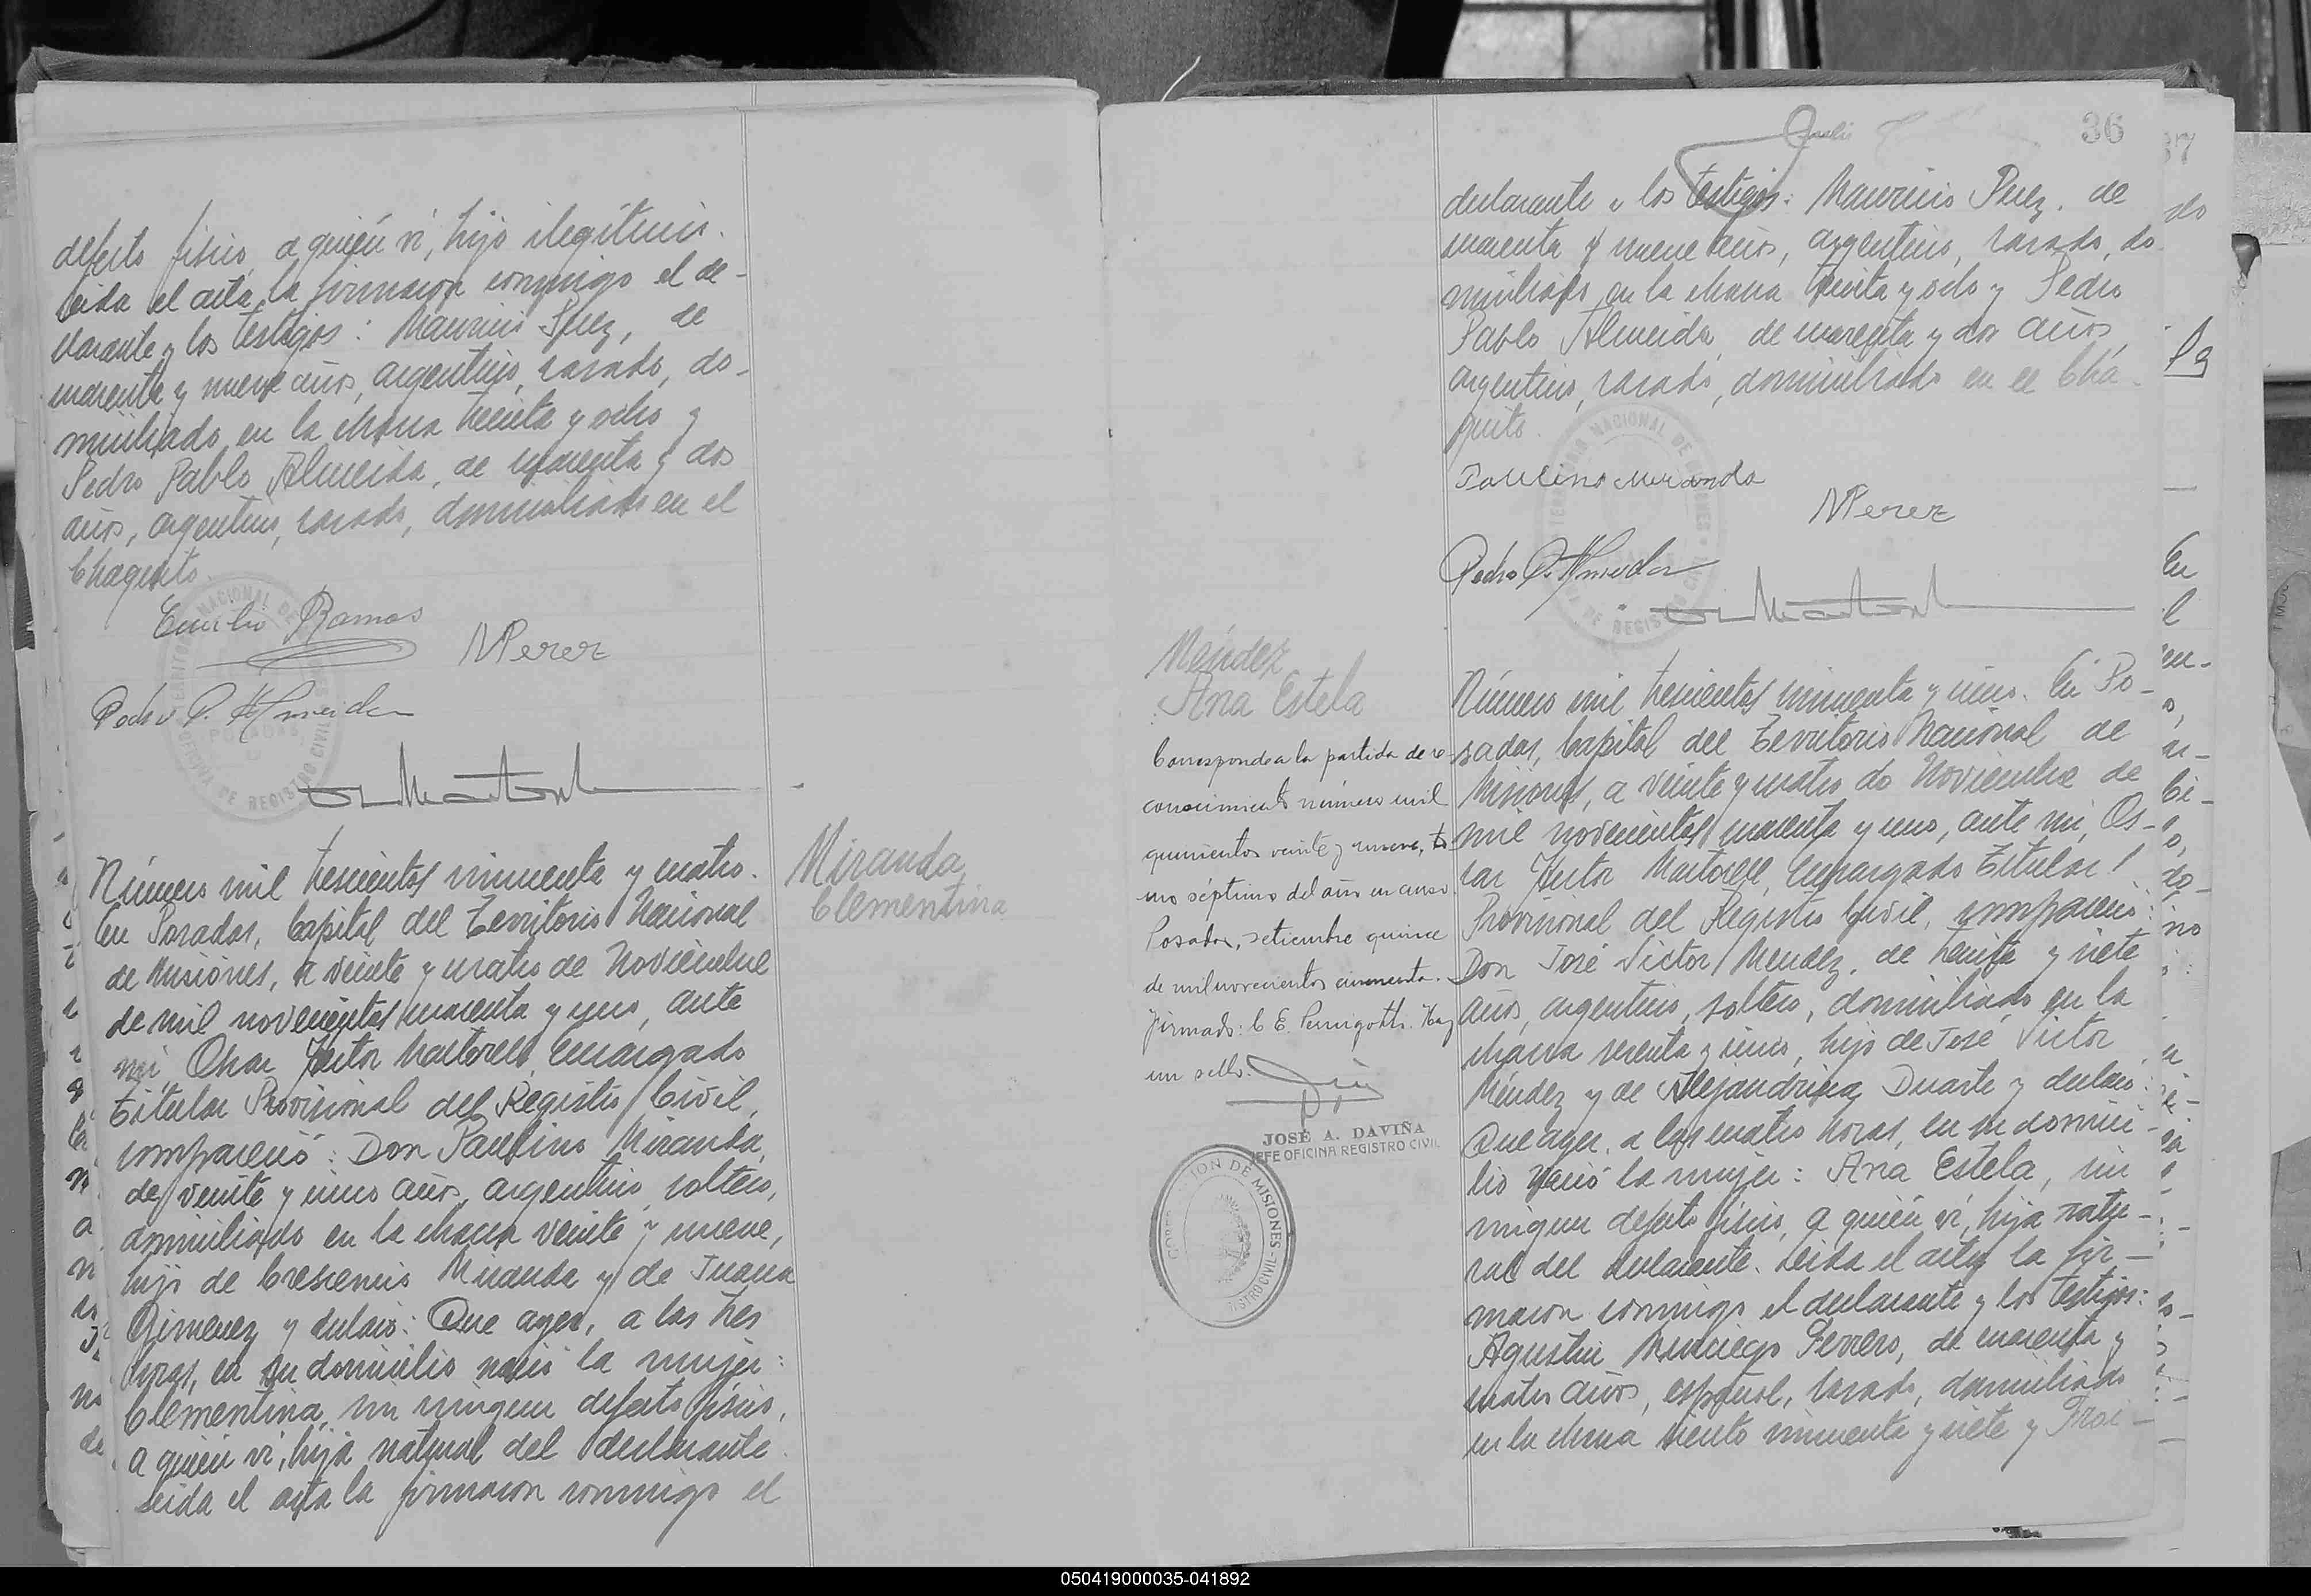 defecto físico, a quién ví, hijo ilegítimo.
Leida el acta, la firmaron conmigo el de-
clarante y los testigos: Mauricio Perez, de
cuarenta y nueve años, argentino, casado, do-
miciliado en la chacra treinta y ocho y
Pedro Pablo Almeida, de cuarenta y dos
años, argentino, casado, domiciliado en el
Chaquito.
Emilio Ramos
MPerez
Pedro P. Almeida
Número mil trescientos cincuenta y cuatro.
En Posadas, Capital del Territorio Nacional
de Misiones, a veinte y cuatro de Noviembre
de mil novecientos cuarenta y uno, ante
mi, Oscar Hector Martorell, Encargado
Titular Provisional del Registro Civil,
compareció: Don Paulino Miranda,
de veinte y cinco años, argentino, soltero,
domiciliado en la chacra veinte y nueve,
hijo de Crescencio Miranda y de Juana
Gimenez y declaró: Que ayer, a las tres
horas, en su domicilio nació la mujer:
Clementina, sin ningun defecto físico,
a quién ví, hija natural del declarante.
Leida el acta la firmaron conmigo el
Miranda
Clementina
36
declarante y los testigos: Mauricio Perez, de
cuarenta y nueve años, argentino, casado, do-
miciliado en la chacra treinta y ocho y Pedro
Pablo Almeida, de cuarenta y dos años,
argentino, casado, domiciliado en el Cha-
quito.
Paulino Miranda
MPerez
Pedro P. Almeida
Méndez
Ana Estela
Corresponde a la partida de re-
conocimiento número mil
quinientos veinte y nueve, to-
mo séptimo del año en curso
Posadas, setiembre quince
de mil novecientos cincuenta.
firmado: C E. Hay
un sello.
JOSÉ A. DAVIÑA
JEFE OFICINA REGISTRO CIVIL
Número mil trescientos cincuenta y cinco. En Po-
sadas, Capital del Territorio Nacional de
Misiones, a veinte y cuatro de Noviembre de
mil novecientos cuarenta y uno, ante mi, Os-
car Hector Martorell, Encargado Titular
Provisional del Registro Civil, compareció:
Don José Victor Mendez, de treinta y siete
años, argentino, soltero, domiciliado en la
chacra sesenta y cinco, hijo de José Victor
Méndez y de Alejandrina Duarte y declaró:
Que ayer, a las cuatro horas, en su domici-
lio nació la mujer: Ana Estela, sin
ningun defecto físico, a quién ví, hija natu-
ral del declarante. Leida el acta la fir-
maron conmigo el declarante y los testigos:
Agustin Ferrero, de cuarenta y
cuatro años, español, casado, domiciliado
en la chacra ciento cincuenta y siete y
37
050419000035-041892